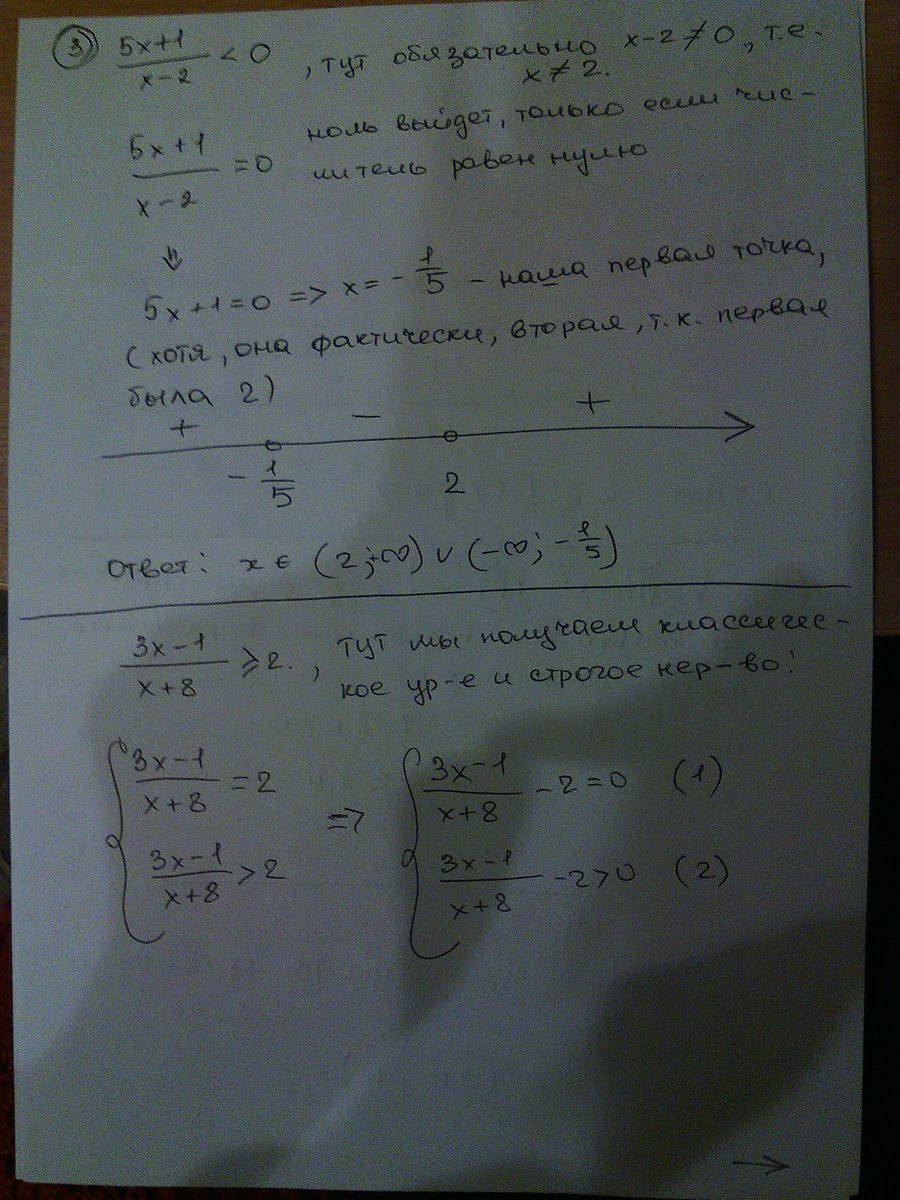 ③ (5x+1)/(x-2) < 0 , тут обязательно x-2≠0, т.е. x≠2.
(5x+1)/(x-2) = 0 ноль выйдет, только если чис-
литель равен нулю
⇓
5x+1=0 => x= -1/5 - наша первая точка,
(хотя, она фактически, вторая, т.к. первая
была 2)
+ - +
-1/5 2
Ответ: x ∈ (2;+∞) ∪ (-∞; -1/5)
(3x-1)/(x+8) ⩾ 2. , тут мы получаем классичес-
кое ур-е и строгое нер-во:
{ (3x-1)/(x+8) = 2 => { (3x-1)/(x+8) - 2 = 0 (1)
(3x-1)/(x+8) > 2 (3x-1)/(x+8) - 2 > 0 (2)
→